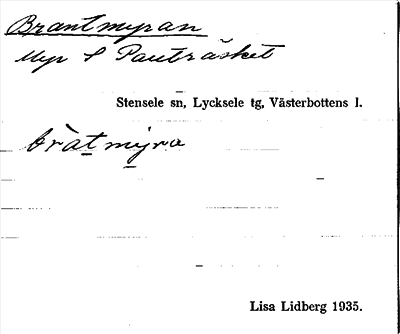 Brantmyran
Myr S Pauträsket
Stensele sn, Lycksele tg, Västerbottens l.
bràtmýra
Lisa Lidberg 1935.